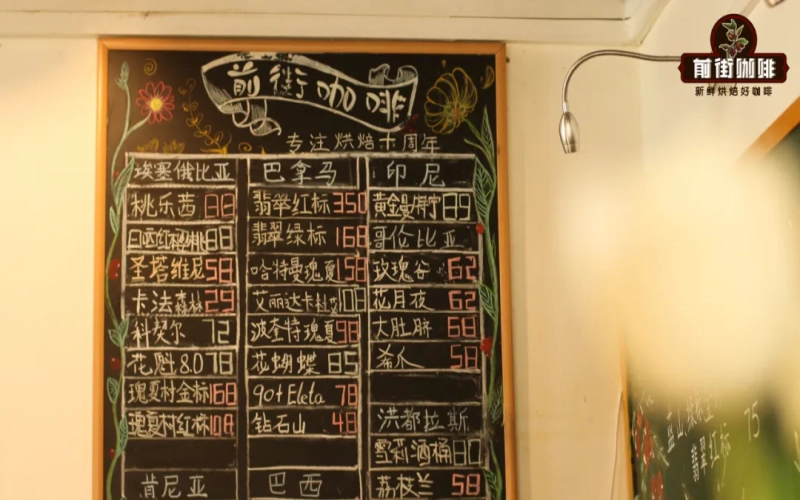 前街咖啡
新鲜烘焙好咖啡
前街咖啡
专注烘焙十周年
埃塞俄比亚 巴拿马 印尼
桃乐茜 88 翡翠红标 350 黄金曼特宁 89
88 翡翠绿标 168 哥伦比亚
圣塔维尼 58 哈特曼瑰夏 158 玫瑰谷 62
卡法森林 29 艾丽达卡杜艾 108 花月夜 62
科契尔 72 波奎特瑰夏 98 大肚脐 68
花魁8.0 78 花蝴蝶 85 希人 58
瑰夏村金标 168 90+ Eleta 78
瑰夏村红标 108 钻石山 48 洪都拉斯
雪莉酒桶 80
肯尼亚 巴西 荔枝兰 58
翡翠红标 75